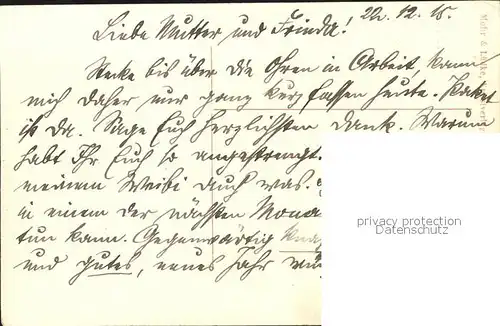 Liebe Mutter und Frieda! 22. 12. 15.
Stecke bis über die Ohren in Arbeit, kann
mich daher nur ganz kurz fassen heute. Paket
ist da. Sage Euch herzlichsten Dank. Warum
habt Ihr Euch so angestrengt.
meinem Weibi auch was.
in einem der nächsten Mona
tun kann. Gegenwärtig
und gutes, neues Jahr wün
privacy protection
Datenschutz